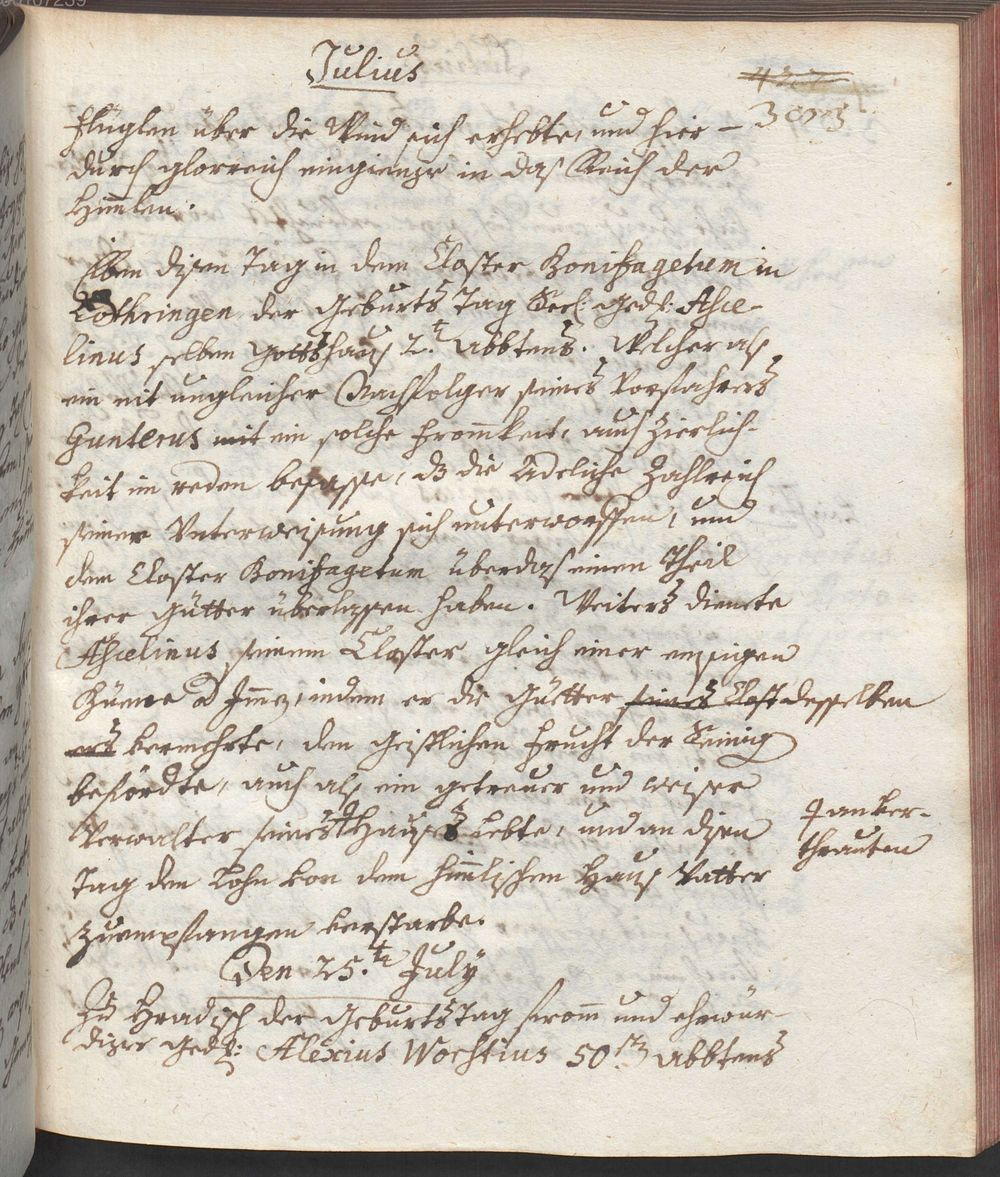 Julius
flüglen über die Wind sich erhebte, und hier-
durch glorreich eingienge in das Reich der
Himmlen.
Eben disen Tag in dem Closter Bonifagetum in
Lothringen der Geburts Tag Seel: Ged: Asce-
linus selben Gottshaus 2.t Abbtens. Welcher als
ein nit ungleicher Nachfolger seines Vorfahrers
Gunterus mit ein solche frommkeit, auch Zierlich-
keit im reden besasse, dz die Adeliche Zahlreich
seiner Unterweisung sich unterworffen, und
dem Closter Bonifagetum überdas einen Theil
ihrer Gütter überlassen haben. Weiters diente
Ascelinus seinem Closter gleich einer
indem er die Güetter seines Clost desselben
ers vermehrte, den Geistlichen frucht der Seinig
beförderte, auch als ein getreuer und weiser
Verwalter seines Hauses lebte, und an disen
anver-
thrauten
Tag den Lohn von dem himlischen Haus Vatter
zu empfangen verstarbe.
Den 25.t July
Zu Hradisch der Geburts Tag fromm und ehrwür-
diger Ged: Alexius Wochtius 50 Abbtens